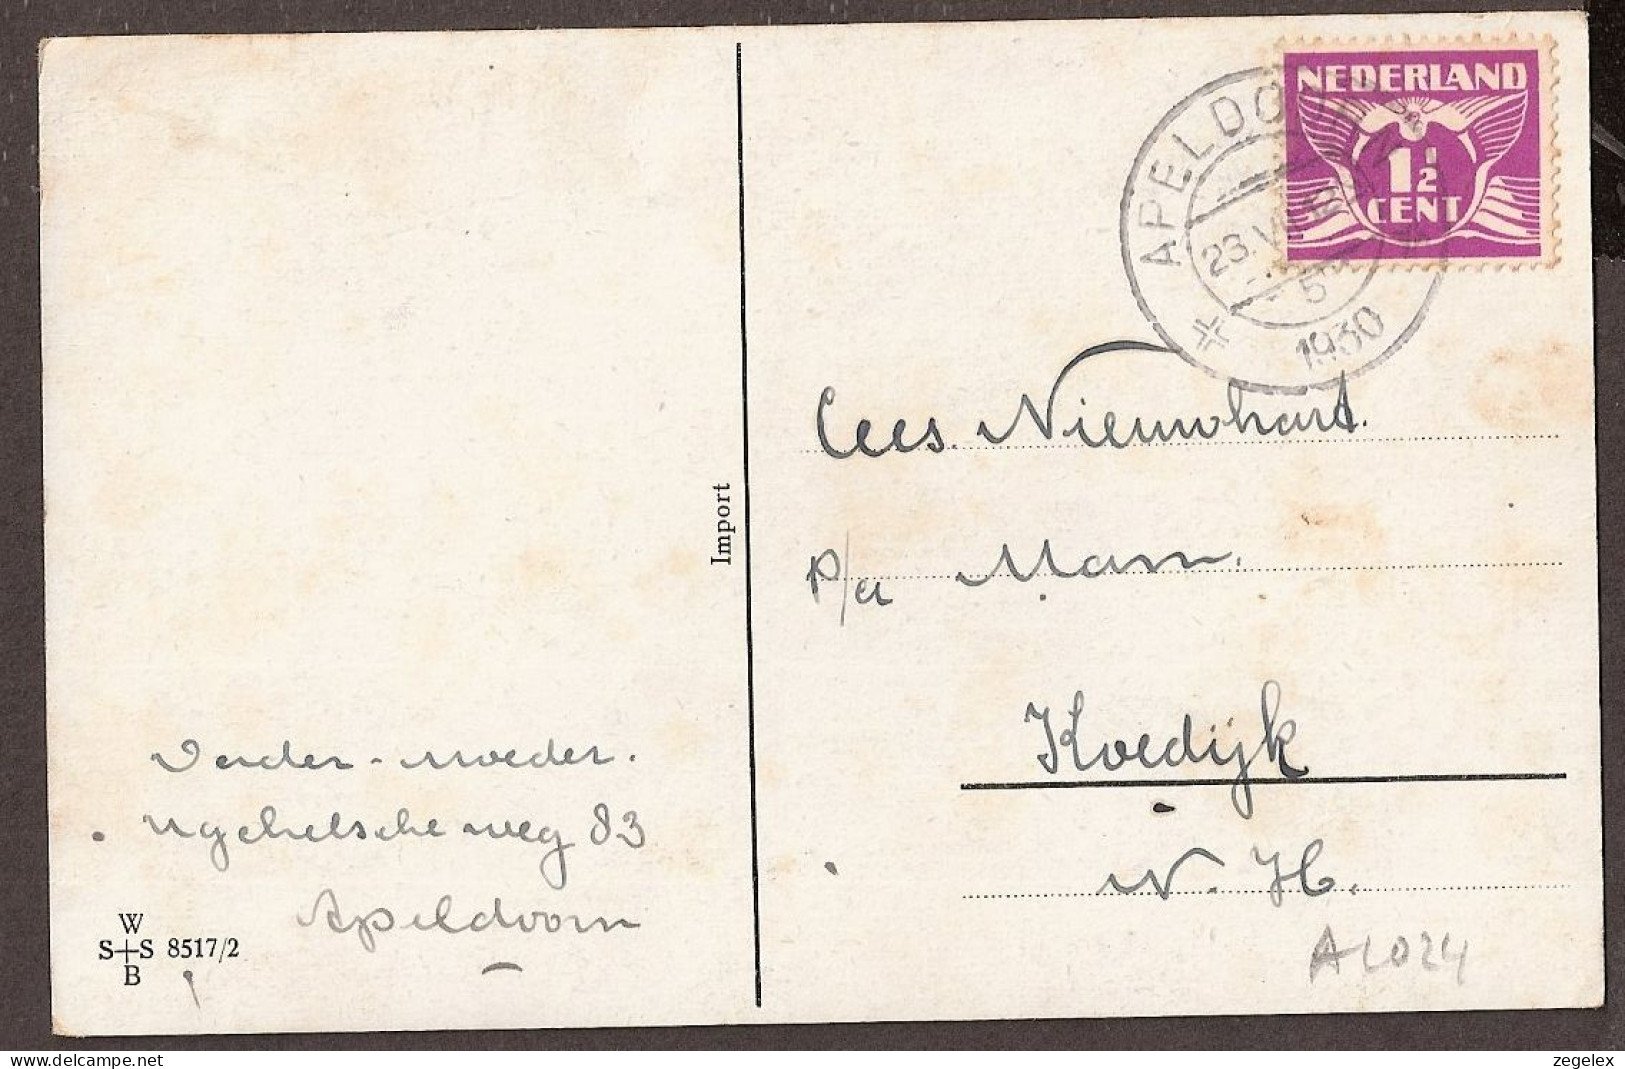 NEDERLAND
1½
CENT
APELDOORN
23.VII
5
1930
Cees Nieuwhart.
p/a Mam.
Koedijk
N. H.
A1024
Import
Vader-moeder.
Ugchelsche weg 83
Apeldoorn
W
S+S 8517/2
B
zegelex
www.delcampe.net